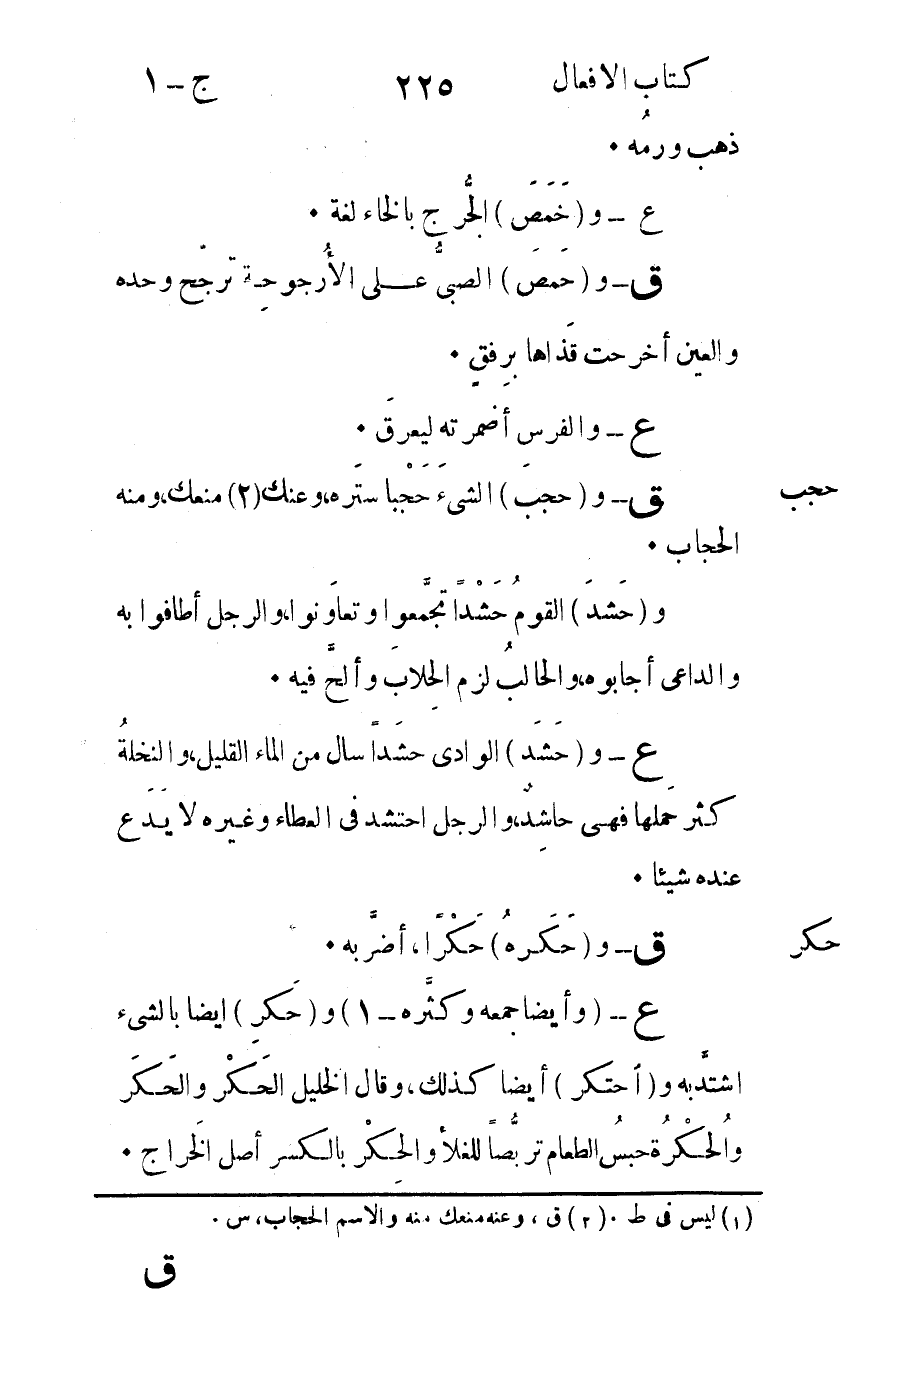 كتاب الافعال ٢٢٥ ج – ١
ذهب ورمُه •
ع – و (خَمَصَ) الجُرح بالخاء لغة •
ق – و (حَمَصَ) الصبىُّ على الأُرجوحِة تَرجّح وحده
والعين أخرحت قَذاها بِرفقٍ •
ع – والفرس أضمرته ليعرقَ •
حجب ق – و (حجبَ) الشىءَ حَجْبا ستَره، وعنك (٢) منعك، ومنه
الحجاب •
و (حَشدَ) القومُ حَشْداً تجَّمعوا وتعاوَنوا، والرجل أطافوا به
والداعى أجابوه، والحالبُ لزم الحِلابَ وألحَّ فيه •
ع – و (حَشَدَ) الوادى حشَداً سال من الماء القليل، والنخلةُ
كثر حَملها فهى حاشِدٌ، والرجل احتشد فى العطاء وغيره لا يَدَع
عنده شيئا •
حكر ق – و (حَكَرهُ) حَكْرًا، أضرَّ به •
ع – (وأيضا جمعه وكثَّره – ١) و (حَكرِ) ايضا بالشىء
اشتدَّ به و (احتكر) أيضا كذلك، وقال الخليل الحَكْر والحَكَر
والحُكْرُة حبسُ الطعام تربُّصاً للغلأ والحِكْر بالكسر أصل الخَراج •
(١) ليس فى ط • (٢) ق، وعنه منعك منه والاسم الحجاب، س •
ق